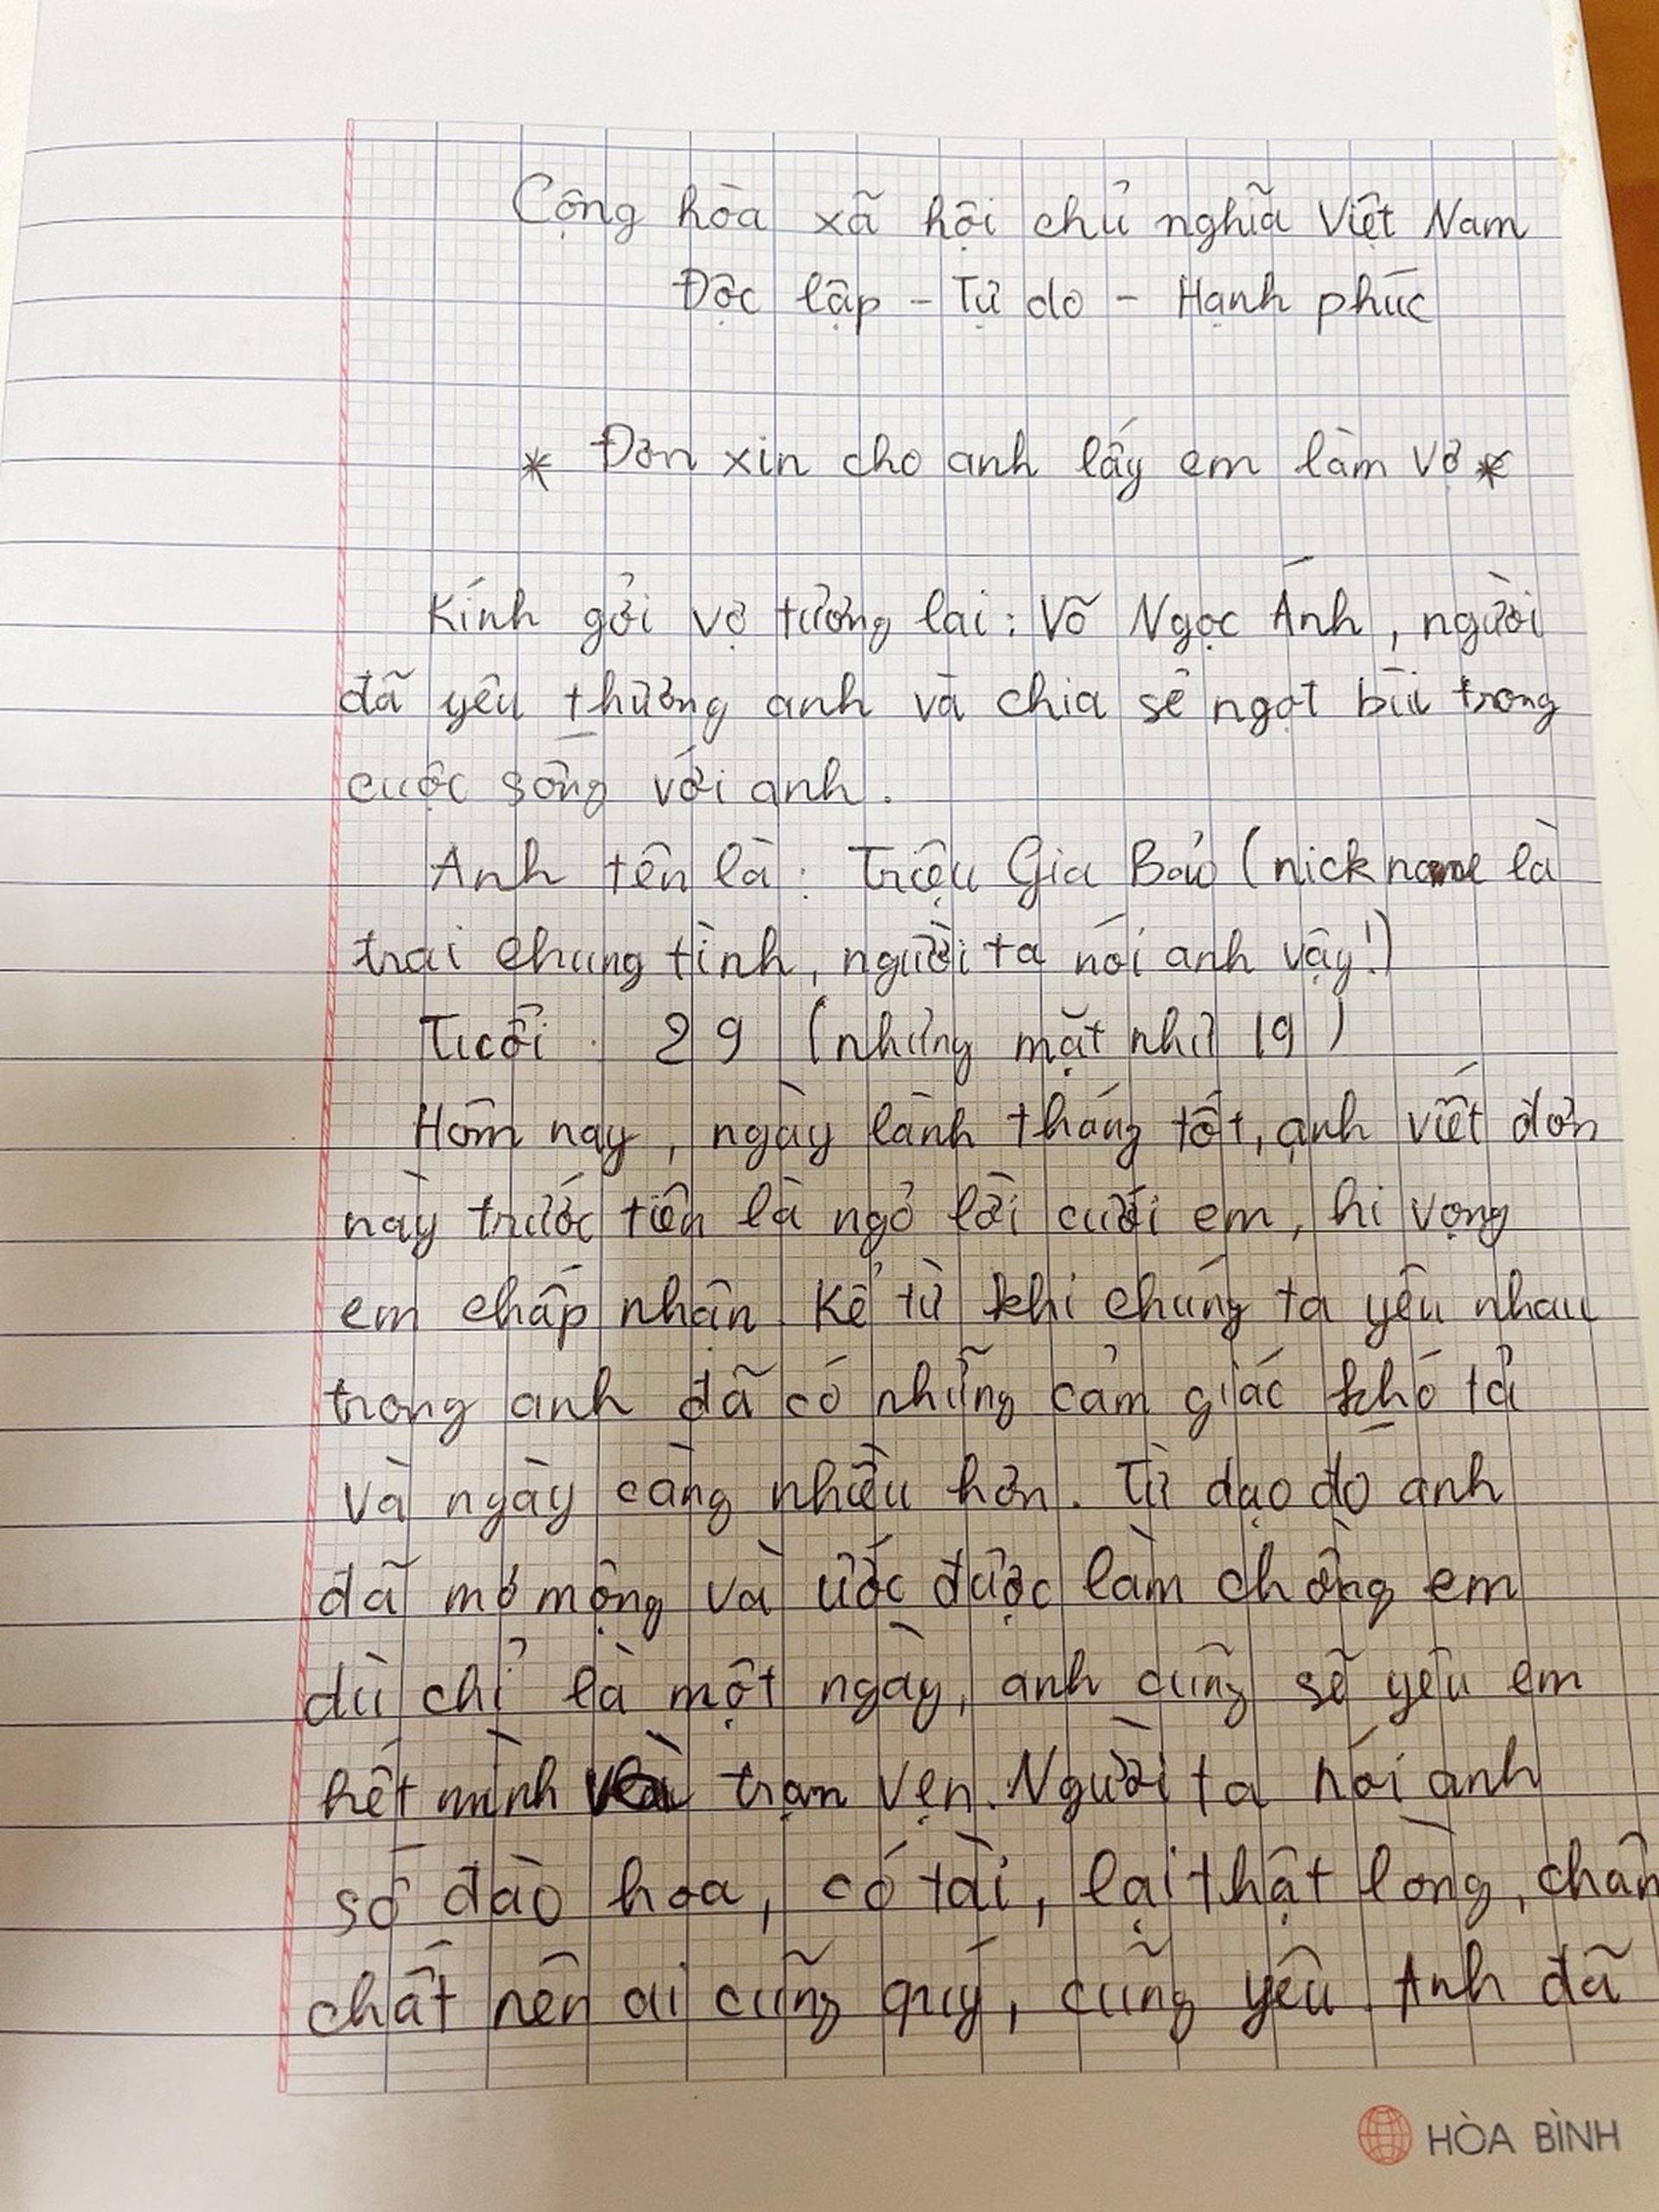 Cộng hòa xã hội chủ nghĩa Việt Nam
Độc lập - Tự do - Hạnh phúc
* Đơn xin cho anh lấy em làm vợ *
Kính gởi vợ tương lai : Võ Ngọc Ánh, người
đã yêu thương anh và chia sẻ ngọt bùi trong
cuộc sống với anh.
Anh tên là : Triệu Gia Bảo (nick name là
trai chung tình, người ta nói anh vậy!)
Tuổi : 29 (nhưng mặt như 19)
Hôm nay, ngày lành tháng tốt, anh viết đơn
này trước tiên là ngỏ lời cưới em, hi vọng
em chấp nhận. Kể từ khi chúng ta yêu nhau
trong anh đã có những cảm giác khó tả
và ngày càng nhiều hơn. Từ dạo đó anh
đã mơ mộng và ước được làm chồng em
dù chỉ là một ngày, anh cũng sẽ yêu em
hết mình và trọn vẹn. Người ta nói anh
số đào hoa, có tài, lại thật lòng, chân
chất nên ai cũng quý, cũng yêu. Anh đã
HÒA BÌNH